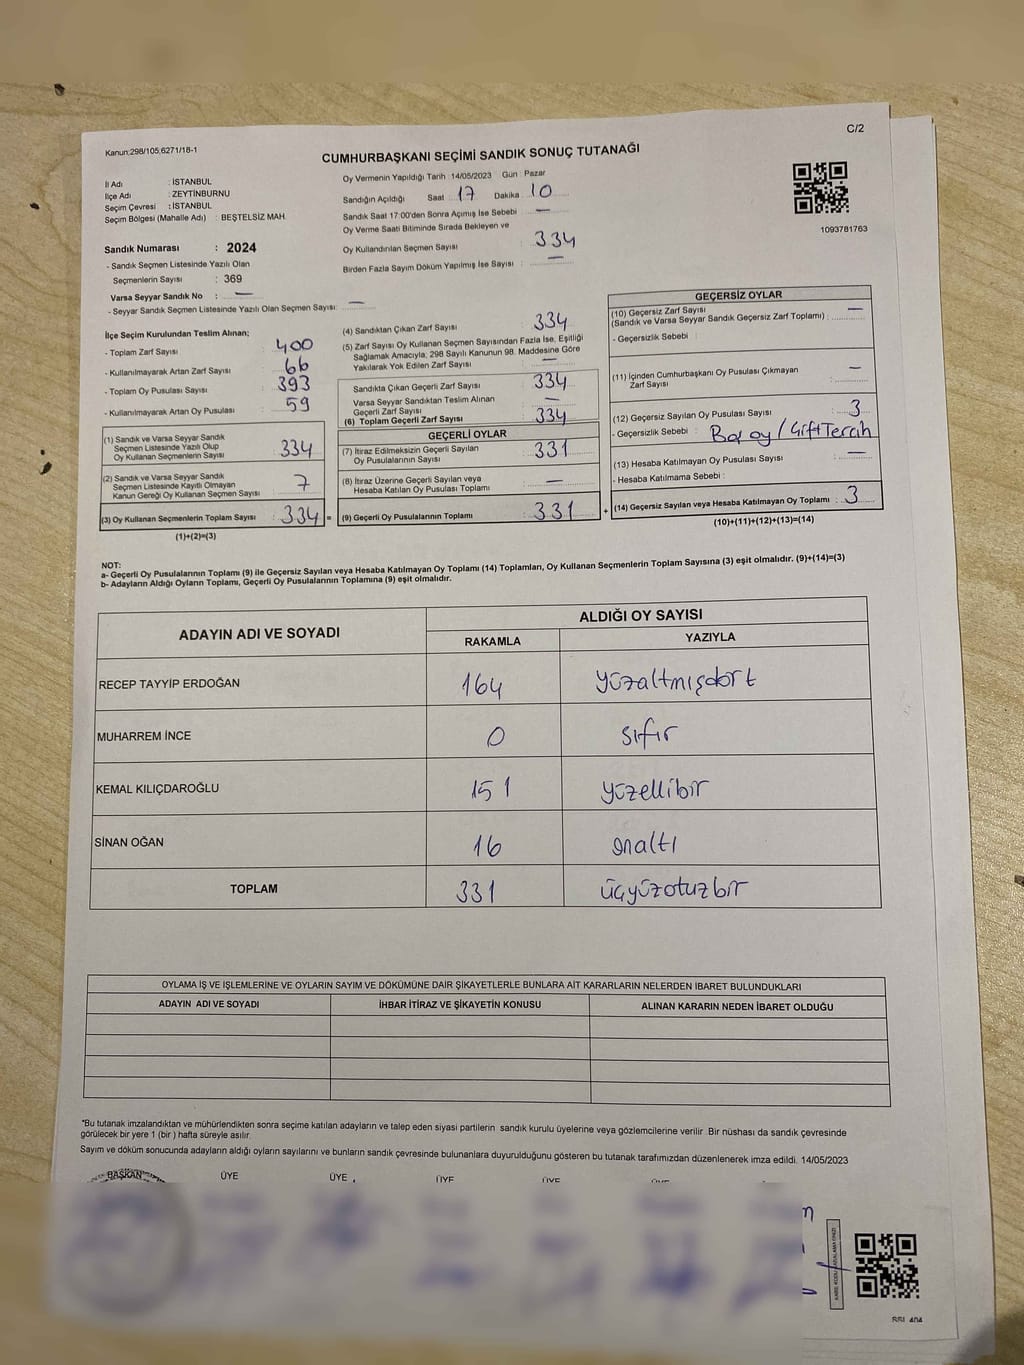 C/2
Kanun:298/105,6271/18-1
CUMHURBAŞKANI SEÇİMİ SANDIK SONUÇ TUTANAĞI
İl Adı : İSTANBUL
İlçe Adı : ZEYTİNBURNU
Seçim Çevresi : İSTANBUL
Seçim Bölgesi (Mahalle Adı) : BEŞTELSİZ MAH.
Sandık Numarası : 2024
- Sandık Seçmen Listesinde Yazılı Olan
Seçmenlerin Sayısı : 369
Varsa Seyyar Sandık No : —
- Seyyar Sandık Seçmen Listesinde Yazılı Olan Seçmen Sayısı: —
Oy Vermenin Yapıldığı Tarih : 14/05/2023 Gün : Pazar
Sandığın Açıldığı Saat 17 Dakika 10
Sandık Saat 17:00'den Sonra Açımış İse Sebebi : —
Oy Verme Saati Bitiminde Sırada Bekleyen ve
Oy Kullandırılan Seçmen Sayısı : 334
Birden Fazla Sayım Döküm Yapılmış İse Sayısı : —
1093781763
İlçe Seçim Kurulundan Teslim Alınan;
- Toplam Zarf Sayısı : 400
- Kullanılmayarak Artan Zarf Sayısı : 66
- Toplam Oy Pusulası Sayısı : 393
- Kullanılmayarak Artan Oy Pusulası : 59
(1) Sandık ve Varsa Seyyar Sandık
Seçmen Listesinde Yazılı Olup
Oy Kullanan Seçmenlerin Sayısı : 334
(2) Sandık ve Varsa Seyyar Sandık
Seçmen Listesinde Kayıtlı Olmayan
Kanun Gereği Oy Kullanan Seçmen Sayısı : 7
(3) Oy Kullanan Seçmenlerin Toplam Sayısı : 334 =
(1)+(2)=(3)
(4) Sandıktan Çıkan Zarf Sayısı : 334
(5) Zarf Sayısı Oy Kullanan Seçmen Sayısından Fazla İse, Eşitliği
Sağlamak Amacıyla; 298 Sayılı Kanunun 98. Maddesine Göre
Yakılarak Yok Edilen Zarf Sayısı : —
Sandıkta Çıkan Geçerli Zarf Sayısı : 334
Varsa Seyyar Sandıktan Teslim Alınan
Geçerli Zarf Sayısı : —
(6) Toplam Geçerli Zarf Sayısı : 334
GEÇERLİ OYLAR
(7) İtiraz Edilmeksizin Geçerli Sayılan
Oy Pusulalarının Sayısı : 331
(8) İtiraz Üzerine Geçerli Sayılan veya
Hesaba Katılan Oy Pusulası Toplamı : —
(9) Geçerli Oy Pusulalarının Toplamı : 331 +
GEÇERSİZ OYLAR
(10) Geçersiz Zarf Sayısı
(Sandık ve Varsa Seyyar Sandık Geçersiz Zarf Toplamı) : —
- Geçersizlik Sebebi :
(11) İçinden Cumhurbaşkanı Oy Pusulası Çıkmayan
Zarf Sayısı : —
(12) Geçersiz Sayılan Oy Pusulası Sayısı : 3
- Geçersizlik Sebebi : Boş oy / Çift Tercih
(13) Hesaba Katılmayan Oy Pusulası Sayısı : —
- Hesaba Katılmama Sebebi :
(14) Geçersiz Sayılan veya Hesaba Katılmayan Oy Toplamı : 3
(10)+(11)+(12)+(13)=(14)
NOT:
a- Geçerli Oy Pusulalarının Toplamı (9) ile Geçersiz Sayılan veya Hesaba Katılmayan Oy Toplamı (14) Toplamları, Oy Kullanan Seçmenlerin Toplam Sayısına (3) eşit olmalıdır. (9)+(14)=(3)
b- Adayların Aldığı Oyların Toplamı, Geçerli Oy Pusulalarının Toplamına (9) eşit olmalıdır.
ADAYIN ADI VE SOYADI
ALDIĞI OY SAYISI
RAKAMLA YAZIYLA
RECEP TAYYİP ERDOĞAN 164 yüzaltmışdört
MUHARREM İNCE 0 sıfır
KEMAL KILIÇDAROĞLU 151 yüzellibir
SİNAN OĞAN 16 onaltı
TOPLAM 331 üçyüzotuzbir
OYLAMA İŞ VE İŞLEMLERİNE VE OYLARIN SAYIM VE DÖKÜMÜNE DAİR ŞİKAYETLERLE BUNLARA AİT KARARLARIN NELERDEN İBARET BULUNDUKLARI
ADAYIN ADI VE SOYADI İHBAR İTİRAZ VE ŞİKAYETİN KONUSU ALINAN KARARIN NEDEN İBARET OLDUĞU
"Bu tutanak imzalandıktan ve mühürlendikten sonra seçime katılan adayların ve talep eden siyasi partilerin sandık kurulu üyelerine veya gözlemcilerine verilir. Bir nüshası da sandık çevresinde
görülecek bir yere 1 (bir) hafta süreyle asılır.
Sayım ve döküm sonucunda adayların aldığı oyların sayılarını ve bunların sandık çevresinde bulunanlara duyurulduğunu gösteren bu tutanak tarafımızdan düzenlenerek imza edildi. 14/05/2023
BAŞKAN ÜYE ÜYE ÜYE ÜYE